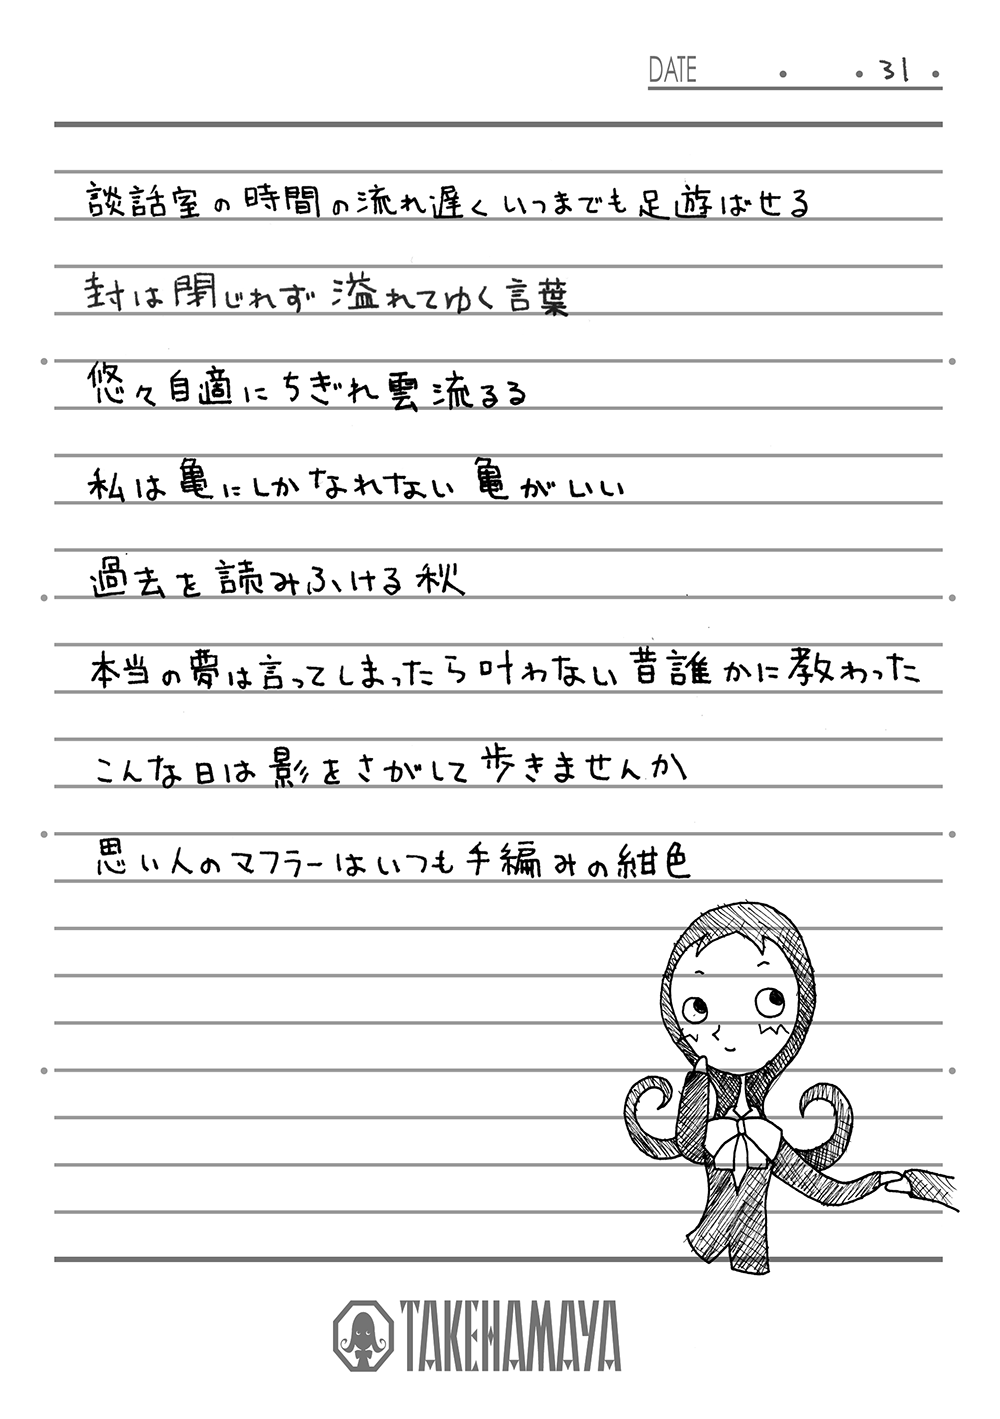 DATE ・ ・31・
談話室の時間の流れ遅くいつまでも足遊ばせる
封は閉じれず溢れてゆく言葉
悠々自適にちぎれ雲流るる
私は亀にしかなれない亀がいい
過去を読みふける秋
本当の夢は言ってしまったら叶わない昔誰かに教わった
こんな日は影をさがして歩きませんか
思い人のマフラーはいつも手編みの紺色
TAKEHAMAYA